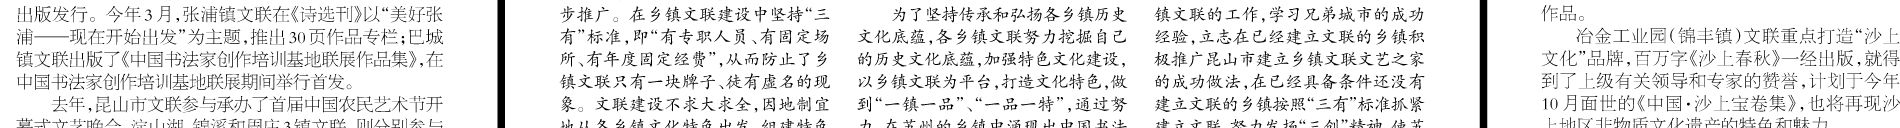 出版发行。今年3月,张浦镇文联在《诗选刊》以“美好张
浦——现在开始出发”为主题,推出30页作品专栏;巴城
镇文联出版了《中国书法家创作培训基地联展作品集》,在
中国书法家创作培训基地联展期间举行首发。
去年,昆山市文联参与承办了首届中国农民艺术节开
幕式文艺晚会,淀山湖、锦溪和周庄3镇文联,则分别参与
步推广。在乡镇文联建设中坚持“三
有”标准,即“有专职人员、有固定场
所、有年度固定经费”,从而防止了乡
镇文联只有一块牌子、徒有虚名的现
象。文联建设不求大求全,因地制宜
地从各乡镇文化特色出发,组建特色
为了坚持传承和弘扬各乡镇历史
文化底蕴,各乡镇文联努力挖掘自己
的历史文化底蕴,加强特色文化建设,
以乡镇文联为平台,打造文化特色,做
到“一镇一品”、“一品一特”,通过努
力,在苏州的乡镇中涌现出中国书法
镇文联的工作,学习兄弟城市的成功
经验,立志在已经建立文联的乡镇积
极推广昆山市建立乡镇文联文艺之家
的成功做法,在已经具备条件还没有
建立文联的乡镇按照“三有”标准抓紧
建立文联,努力发扬“三创”精神,使苏
作品。
冶金工业园(锦丰镇)文联重点打造“沙上
文化”品牌,百万字《沙上春秋》一经出版,就得
到了上级有关领导和专家的赞誉,计划于今年
10月面世的《中国·沙上宝卷集》,也将再现沙
上地区非物质文化遗产的特色和魅力。